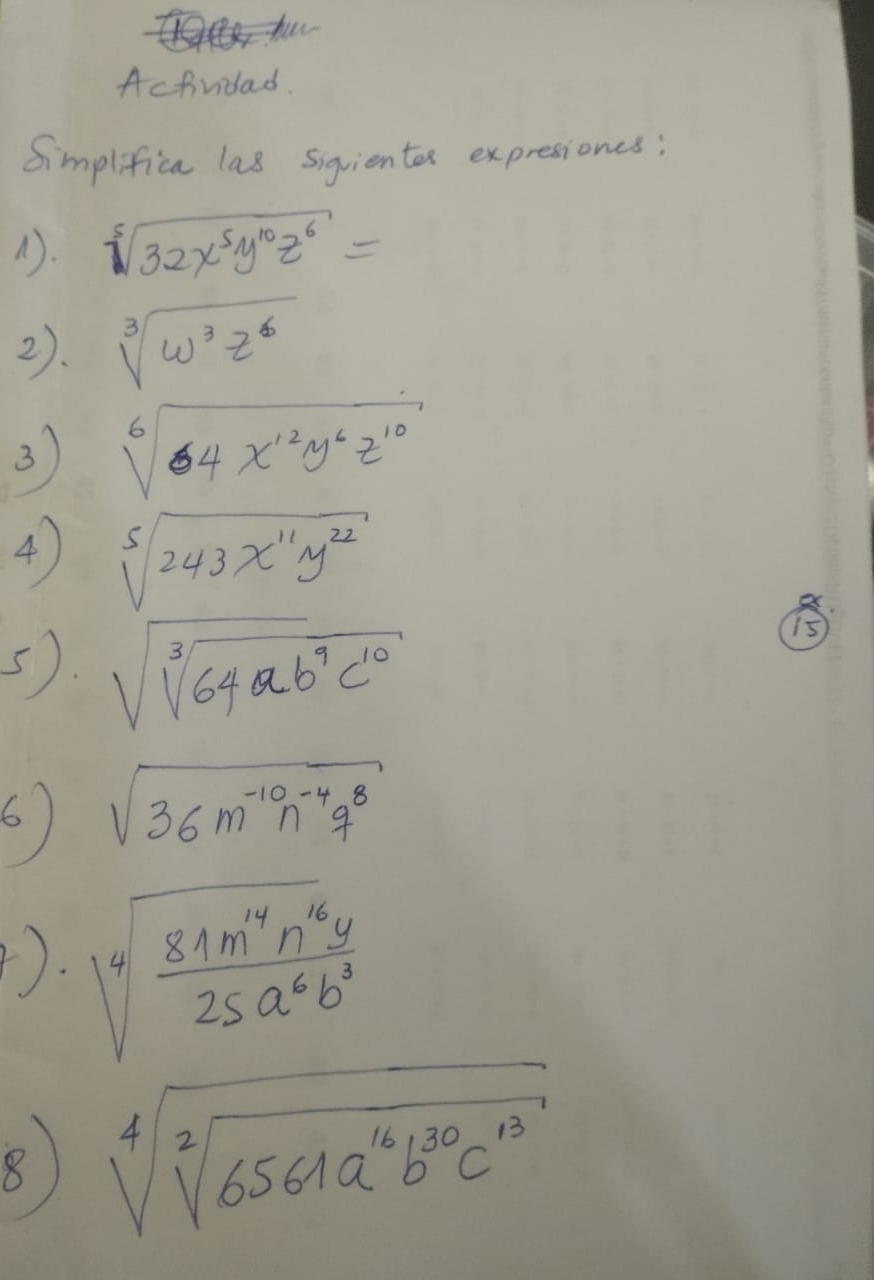 Actividad.
Simplifica las siguientes expresiones:
1). ⁵√(32x⁵y¹⁰z⁶) =
2). ³√(w³z⁶)
3) ⁶√(64x¹²y⁶z¹⁰)
4) ⁵√(243x¹¹y²²)
5). √(³√(64ab⁹c¹⁰))
15
6) √(36m⁻¹⁰n⁻⁴q⁸)
7). ⁴√(81m¹⁴n¹⁶y / 25a⁶b³)
8) ⁴√(²√(6561a¹⁶b³⁰c¹³))